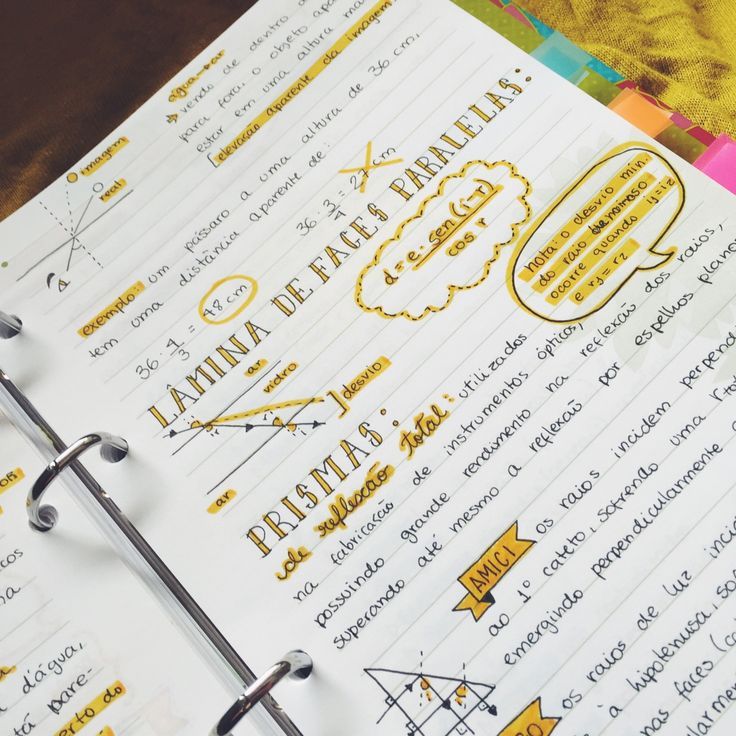 vendo de dentro d
água→ar
para fora, o objeto apa
estar em uma altura ma
elevação aparente da imagem
imagem
real
exemplo: um pássaro a uma altura de 36 cm,
tem uma distância aparente de:
36 · 4/3 = 48 cm
36 · 3/4 = 27 cm
LÂMINA DE FACES PARALELAS:
ar
vidro
ar
desvio
d = e · sen(i-r)
cos r
nota: o desvio mín.
do raio
ocorre quando i1 = i2
e r1 = r2
PRISMAS:
de reflexão total: utilizados
na fabricação de instrumentos ópticos,
possuindo grande rendimento na reflexão dos raios,
superando até mesmo a reflexão por espelhos planos
AMICI
os raios incidem perpendi
ao 1º cateto, sofrendo uma
emergindo perpendicularmente
os raios de luz incid
à hipotenusa, so
nas faces (ca
larmen
d'água,
tá pare-
erto do